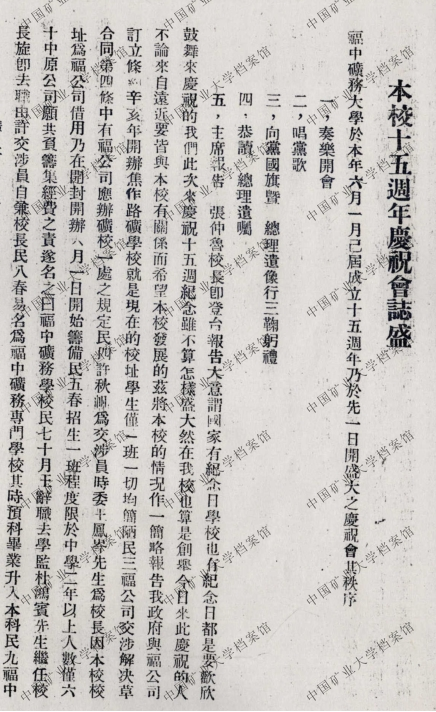 本校十五週年慶祝會誌盛
福中礦務大學於本年六月一日已屆成立十五週年乃於先一日開盛大之慶祝會其秩序
一，奏樂開會
二，唱黨歌
三，向黨國旗暨 總理遺像行三鞠躬禮
四，恭讀 總理遺囑
五，主席報告 張仲魯校長卽登台報告大意謂國家有紀念日學校也有紀念日都是要歡欣
鼓舞來慶祝的我們此次來慶祝十五週紀念雖不算怎樣盛大然在我校也算是創舉今日來此慶祝的人
不論來自遠近要皆與本校有關係而希望本校發展的茲將本校的情况作一簡略報告我政府與福公司
訂立條 辛亥年開辦焦作路礦學校就是現在的校址學生僅一班一切均簡陋民三福公司交涉解决草
合同第四條中有福公司應辦礦校一處之規定民四許秋 爲交涉員時委王鳳岑先生爲校長因本校校
址爲福公司借用乃在開封開辦八月一日開始籌備民五春招生一班程度限於中學二年以上人數僅六
十中原公司願共負籌集經費之責遂名之曰福中礦務學校民七十月王辭職去學監杜鴻賓先生繼任校
長旋卽去職由許交涉員自兼校長民八春易名爲福中礦務專門學校其時預科畢業升入本科民九福中
中国矿业大学档案馆